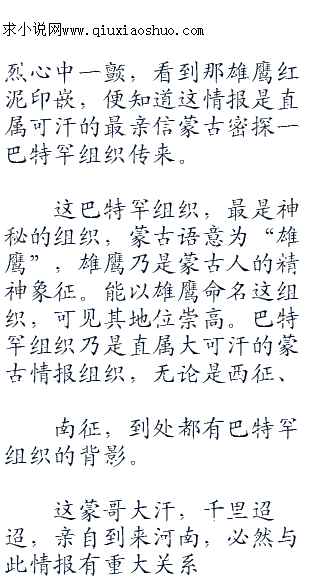 求小说网www.qiuxiaoshuo.com
烈心中一颤，看到那雄鹰红
泥印嵌，便知道这情报是直
属可汗的最亲信蒙古密探一
巴特罕组织传来。
这巴特罕组织，最是神
秘的组织，蒙古语意为“雄
鹰”，雄鹰乃是蒙古人的精
神象征。能以雄鹰命名这组
织，可见其地位崇高。巴特
罕组织乃是直属大可汗的蒙
古情报组织，无论是西征、
南征，到处都有巴特罕
组织的背影。
这蒙哥大汗，千里迢
迢，亲自到来河南，必然与
此情报有重大关系